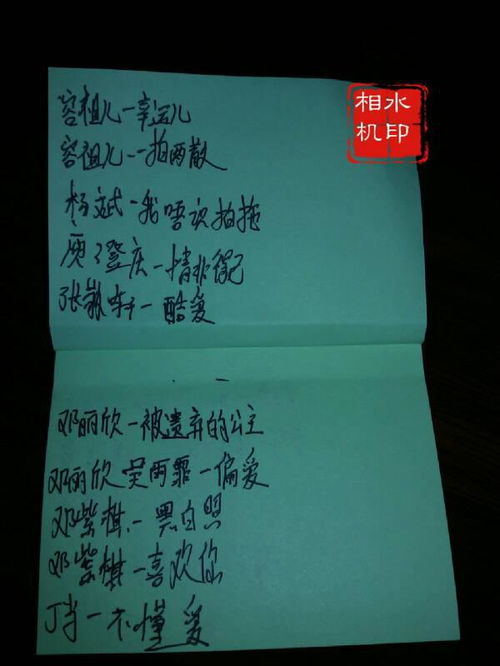 水印
相机
容祖儿-幸运儿
容祖儿-拍两散
杨斌-我唔识拍拖
澄庆-情非得已
张敬轩-酷爱
邓丽欣-被遗弃的公主
邓丽欣 吴雨霏-偏爱
邓紫棋-黑白照
邓紫棋-喜欢你
-不懂爱